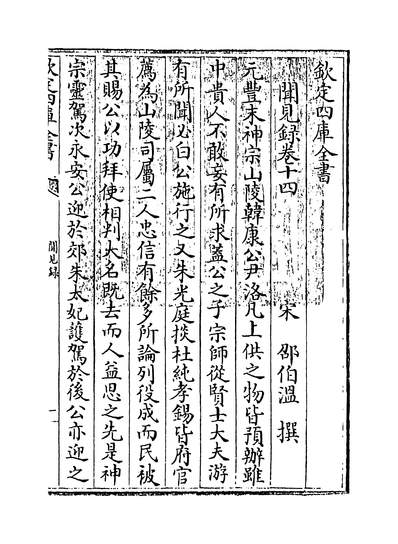 欽定四庫全書
聞見録卷十四
宋 邵伯溫 撰
元豐末神宗山陵韓康公尹洛凡上供之物皆預辦雖
中貴人不敢妄有所求蓋公之子宗師從賢士大夫游
有所聞必白公施行之又朱光庭掞杜純孝錫皆府官
薦為山陵司屬二人忠信有餘多所論列役成而民被
其賜公以功拜使相判大名既去而人益思之先是神
宗靈駕次永安公迎於郊朱太妃護駕於後公亦迎之
欽定四庫全書
聞見録
一